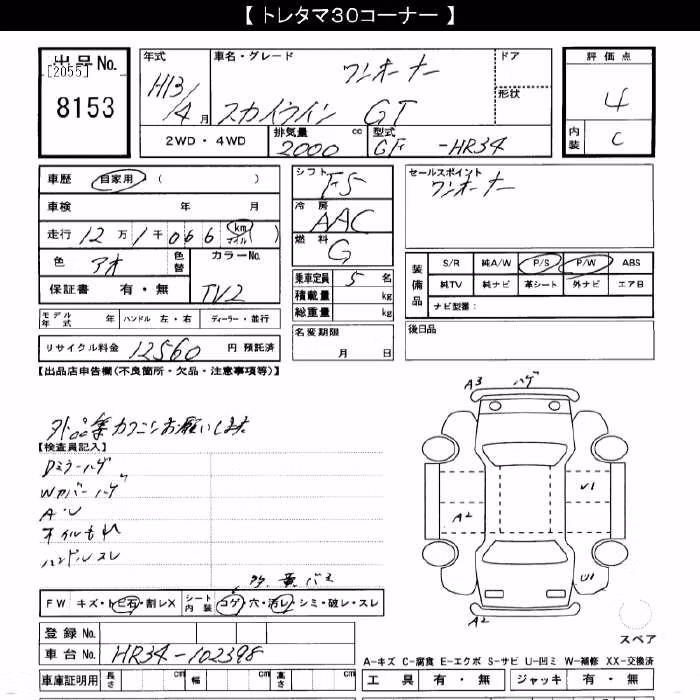 【 トレタマ30コーナー 】
出品No.
[2055]
8153
年式
H13/4月
車名・グレード
ワンオーナー
スカイライン GT
ドア
形状
2WD・4WD
排気量
2000
cc
型式
GF -HR34
評価点
4
内装
C
車歴 自家用 ( )
車検 年 月
走行 12万1千066 km マイル )
色 アオ 色替 カラーNo.
TV2
保証書 有・無
モデル年式 年 ハンドル 左・右 ディーラー・並行
リサイクル料金 12560 円 預託済
シフト F5
冷房 AAC
燃料 G
乗車定員 5 名
積載量 kg
総重量 kg
名変期限
月 日
セールスポイント
ワンオーナー
装備品
S/R 純A/W P/S P/W ABS
純TV 純ナビ 革シート 外ナビ エアB
ナビ型番:
後日品
【出品店申告欄(不良箇所・欠品・注意事項等)】
外品等カクニンお願いします
【検査員記入】
Dミラーハゲ
Wカバーハゲ
A・U
オイルもれ
ハンドルスレ
FW キズ・トビ石・割レX シート内装 コゲ・穴・汚レ・シミ・破レ・スレ
登録No.
車台No. HR34-102398
車庫証明用 長さ cm 幅 cm 高さ cm
A3 ハゲ
U1
A2
U1
A2
スペア
A-キズ C-腐食 E-エクボ S-サビ U-凹ミ W-補修 XX-交換済
工具 有・無 ジャッキ 有・無